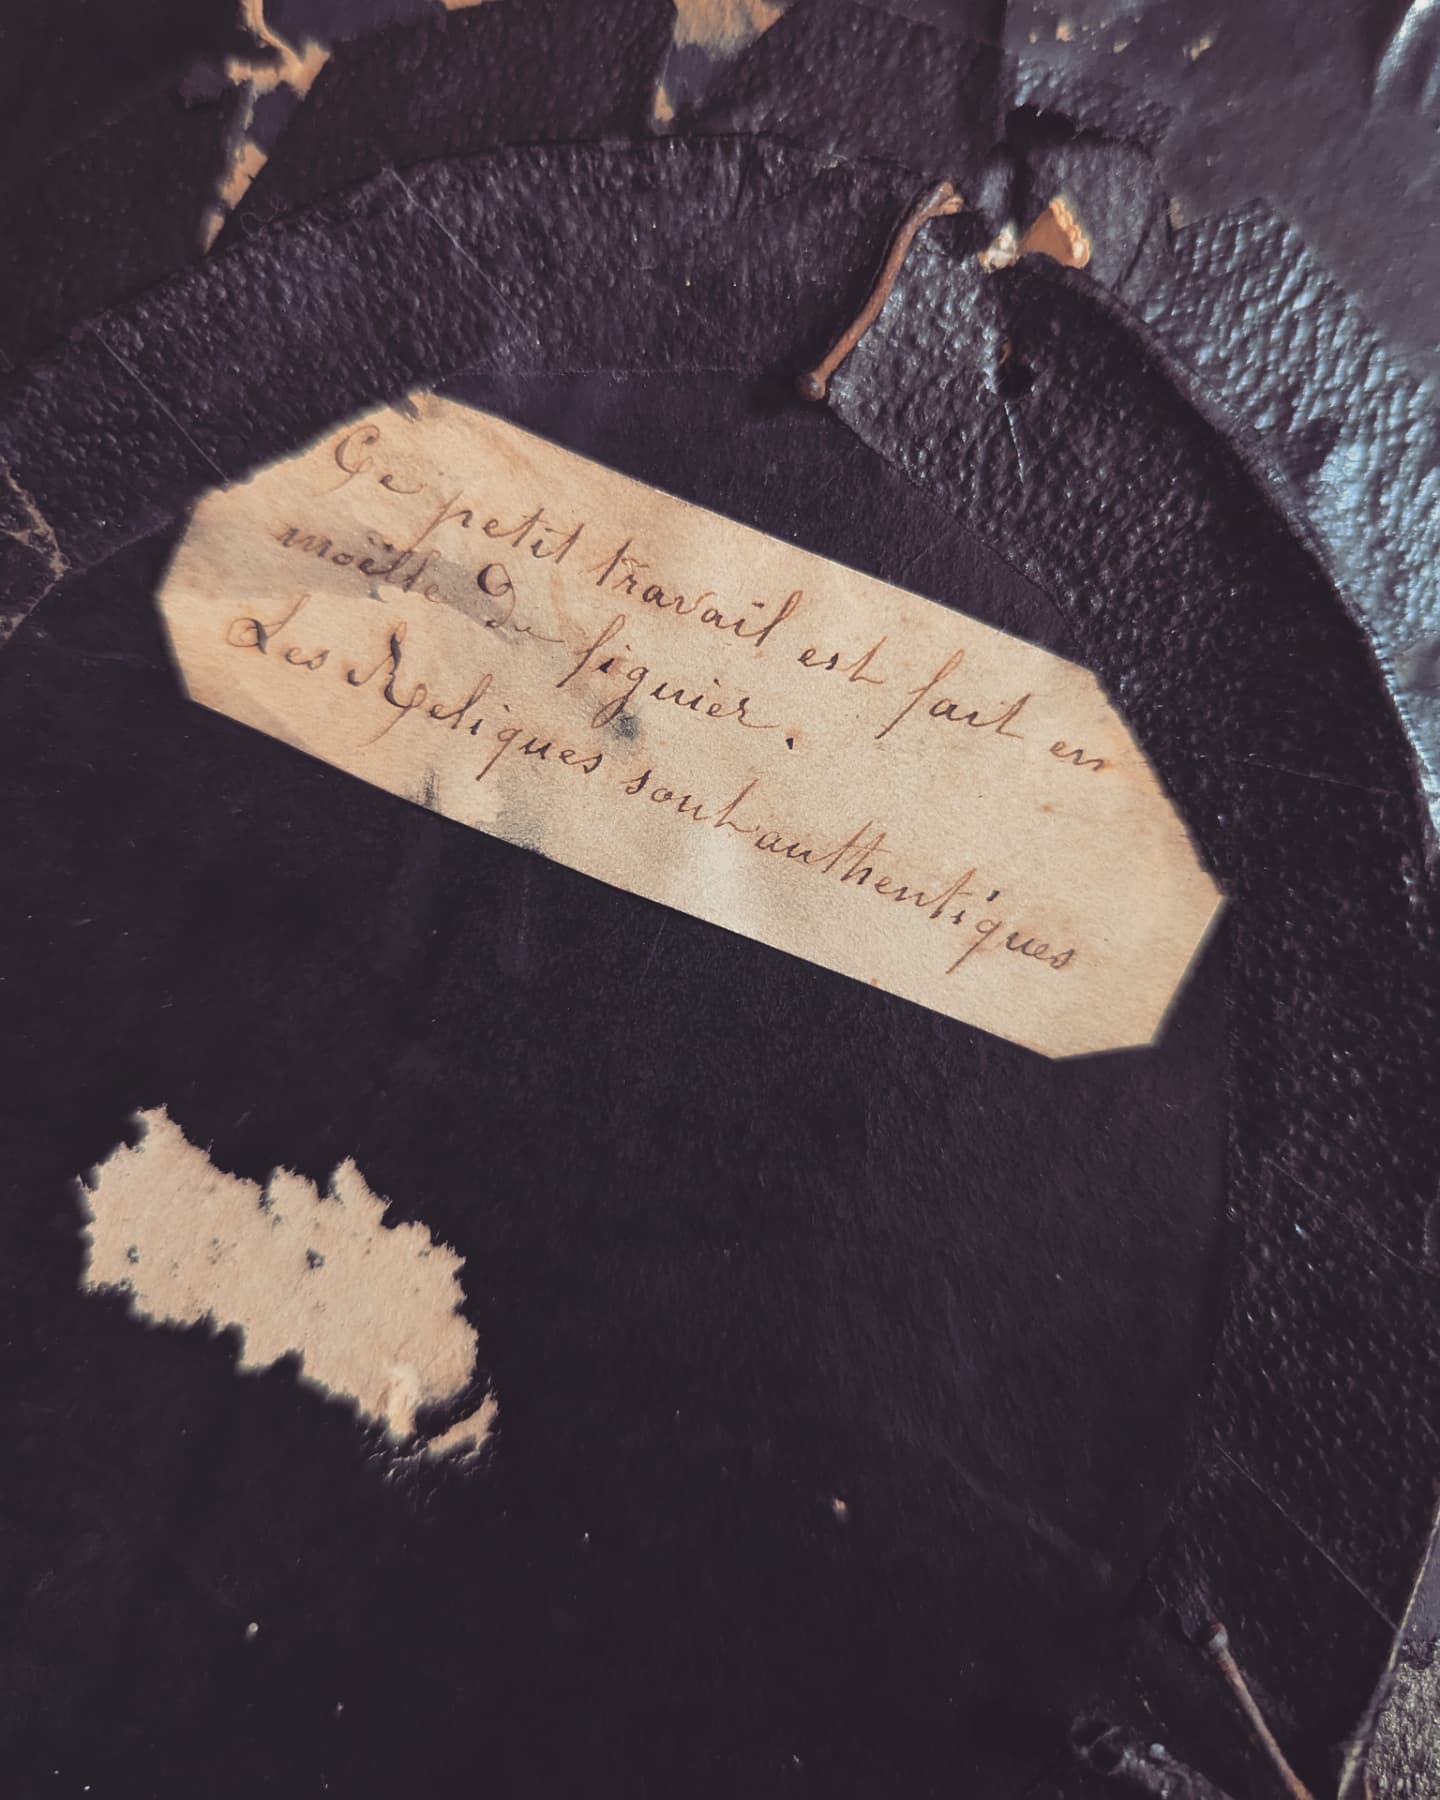 Ce petit travail est fait en
moëlle de figuier.
Les Reliques sont authentiques